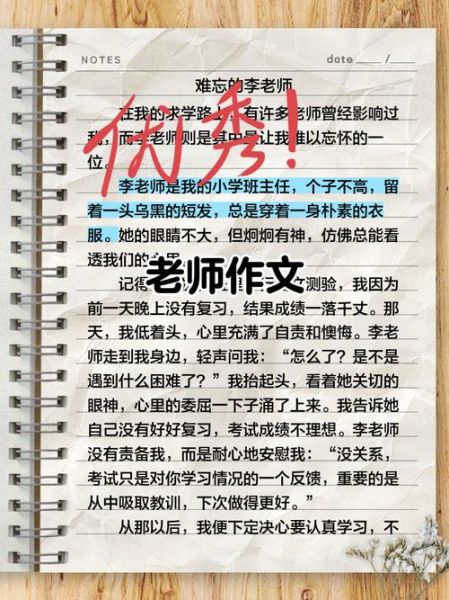 NOTES
date ___ /___
难忘的李老师
在我的求学路上，有许多老师曾经影响过
我，而李老师则是其中最让我难以忘怀的一
位。
优秀！
李老师是我的小学班主任，个子不高，留
着一头乌黑的短发，总是穿着一身朴素的衣
服。她的眼睛不大，但炯炯有神，仿佛总能看
透我们的
老师作文
记得 测验，我因为
前一天晚上没有复习，结果成绩一落千丈。那
天，我低着头，心里充满了自责和懊悔。李老
师走到我身边，轻声问我：“怎么了？是不是
遇到什么困难了？”我抬起头，看着她关切的
眼神，心里的委屈一下子涌了上来。我告诉她
自己没有好好复习，考试成绩不理想。李老师
没有责备我，而是耐心地安慰我：“没关系，
考试只是对你学习情况的一个反馈，重要的是
从中吸取教训，下次做得更好。”
从那以后，我便下定决心要认真学习，不